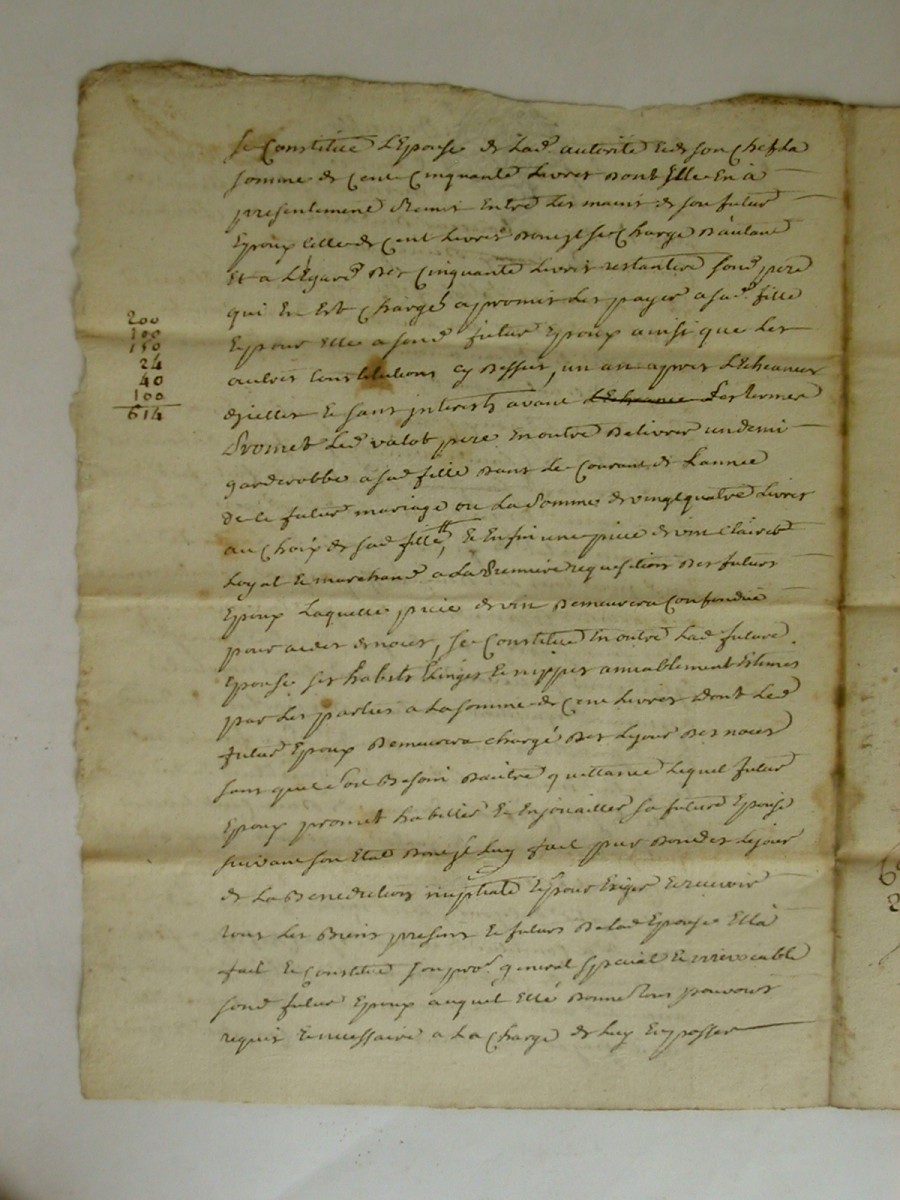 se Constitue L'Epouse de lad. autorité Et de son Chef La
Somme de Cent Cinquante Livres dont Elle En à
presentement Remis Entre Les mains de son futur
Epoux Celle de Cent Livres donct il se Charge d'autant
Et a L'Egard des Cinquante Livres restantes sond. pere
qui En Est Chargé a promis Les payer a sad. fille
Et pour Elle a sond. futur Epoux ainsi que Les
autres Constitutions cy dessus, un an apres L'Echeance
d'icelles Et sans interests avant L'Echeance des termes
Promet Led. valot pere En outre delivrer un demi
garderobbe a sad. fille dans Le Courant de L'annee
de le futur mariage ou La Somme de vingt quatre Livres
au Choix de sad. fille, Et Enfin une piece de vin Clairet
Loyal Et marchand a La Premiere requisition des futurs
Epoux Laquelle piece de vin demeurera Confondue
pour aider de noces, se Constitue En outre Lad. future
Epouse ses habits Linges Et nippes amiablement Estimés
par Les parties a La somme de Cent Livres dont Led.
futur Epoux demeurera chargé des Le jour des noces
sans quil soit Besoin d'autre quittance Lequel futur
Epoux promet habiller Et Enjouailler sa future Epouse
suivant son Etat donct il Luy fait pur don des Le jour
de La Benediction nuptiale Et pour Exiger Et recevoir
tous Les Biens presens Et futurs de Lad. Epouse Ell'à
fait Et Constitué son pror. general special Et irrevocable
sond. futur Epoux auquel Elle donne tous pouvoirs
requis Et necessaire a La Charge de Luy En passer
200
100
150
24
40
100
614
6
2